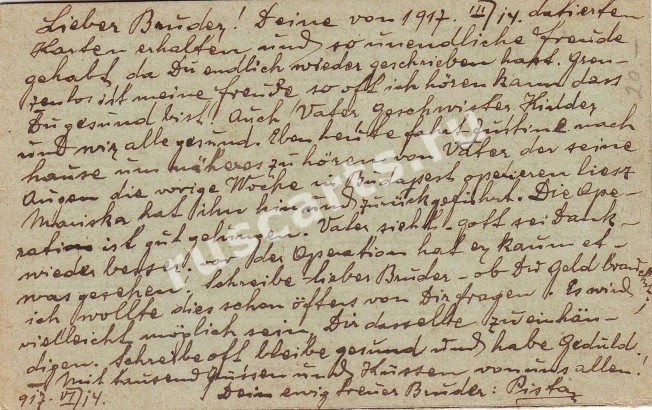 Lieber Bruder! Deine von 1917. III/14. datierten
Karten erhalten und so unendliche Freude
gehabt, da Du endlich wieder geschrieben hast. Gren-
zenlos ist meine Freude so oft ich hören kann dass
Du gesund bist! Auch Vater Geschwister Kinder
und wir alle gesund. Eben heute fährt Justine nach
hause um näheres zu hören von Vater der seine
Augen die vorige Woche in Budapest operieren liesz
Mariska hat ihn hin und zurückgeführt. Die Ope-
ration ist gut gelungen. Vater sieht - gott sei Dank -
wieder besser. vor der Operation hat er kaum et-
was gesehen. Schreibe lieber Bruder - ob Du Geld brauchst,
ich wollte dies schon öfters von Dir fragen. Es wird
vielleicht möglich sein, Dir dasselbe zu einhän-
digen. Schreibe oft bleibe gesund und habe Geduld.
Mit tausend Grüssen und Küssen von uns allen!
917. VI/14. Dein ewig treuer Bruder: Pista
20.-
ruscards.ru